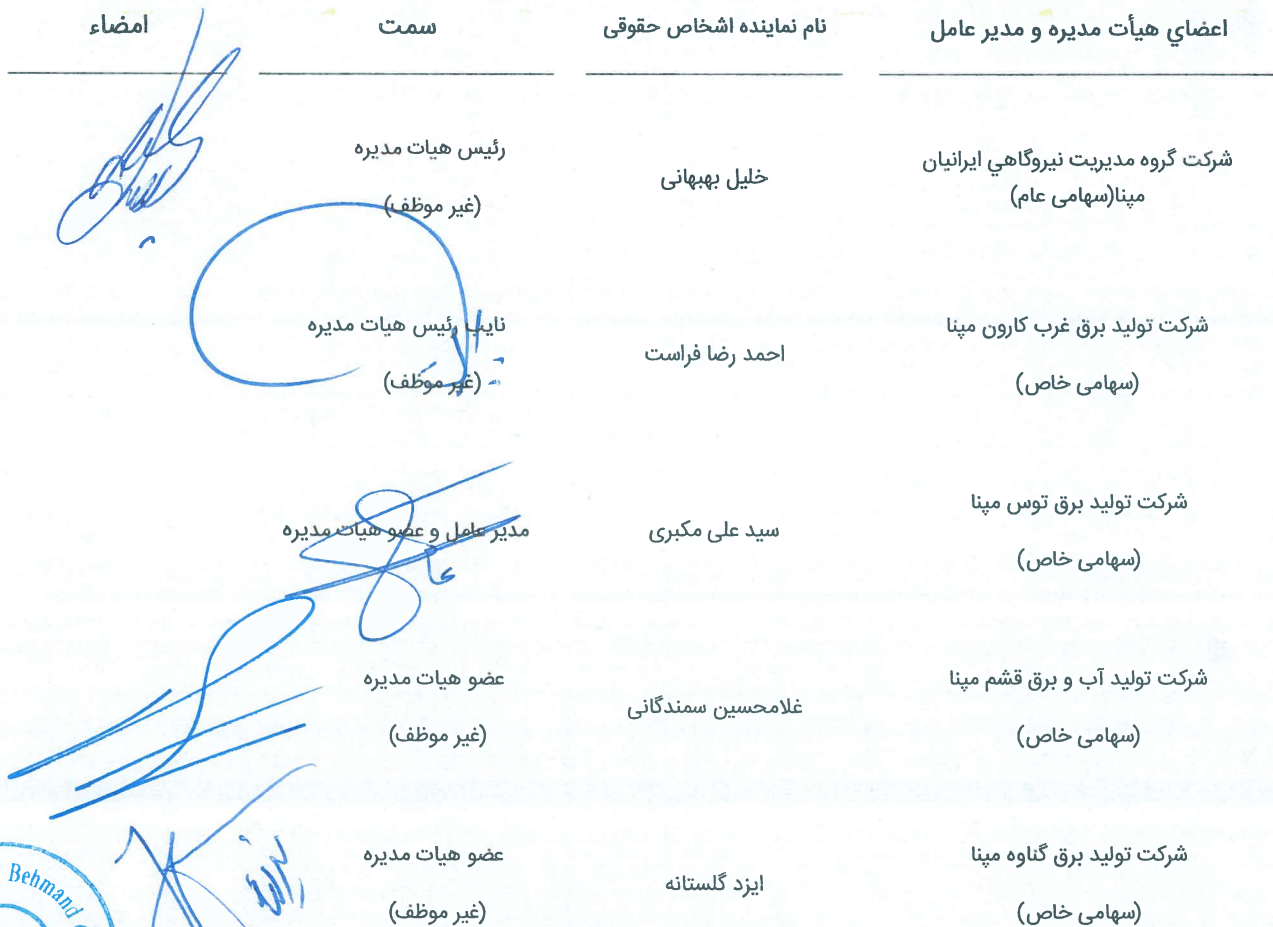 اعضاي هيأت مديره و مدير عامل	نام نماینده اشخاص حقوقی	سمت	امضاء
شرکت گروه مدیریت نیروگاهي ایرانیان مپنا(سهامی عام)	خلیل بهبهانی	رئیس هیات مدیره (غیر موظف)
شرکت تولید برق غرب کارون مپنا (سهامی خاص)	احمد رضا فراست	نایب رئیس هیات مدیره (غیر موظف)
شرکت تولید برق توس مپنا (سهامی خاص)	سید علی مکبری	مدیر عامل و عضو هیات مدیره
شرکت تولید آب و برق قشم مپنا (سهامی خاص)	غلامحسین سمندگانی	عضو هیات مدیره (غیر موظف)
شرکت تولید برق گناوه مپنا (سهامی خاص)	ایزد گلستانه	عضو هیات مدیره (غیر موظف)
Behmand